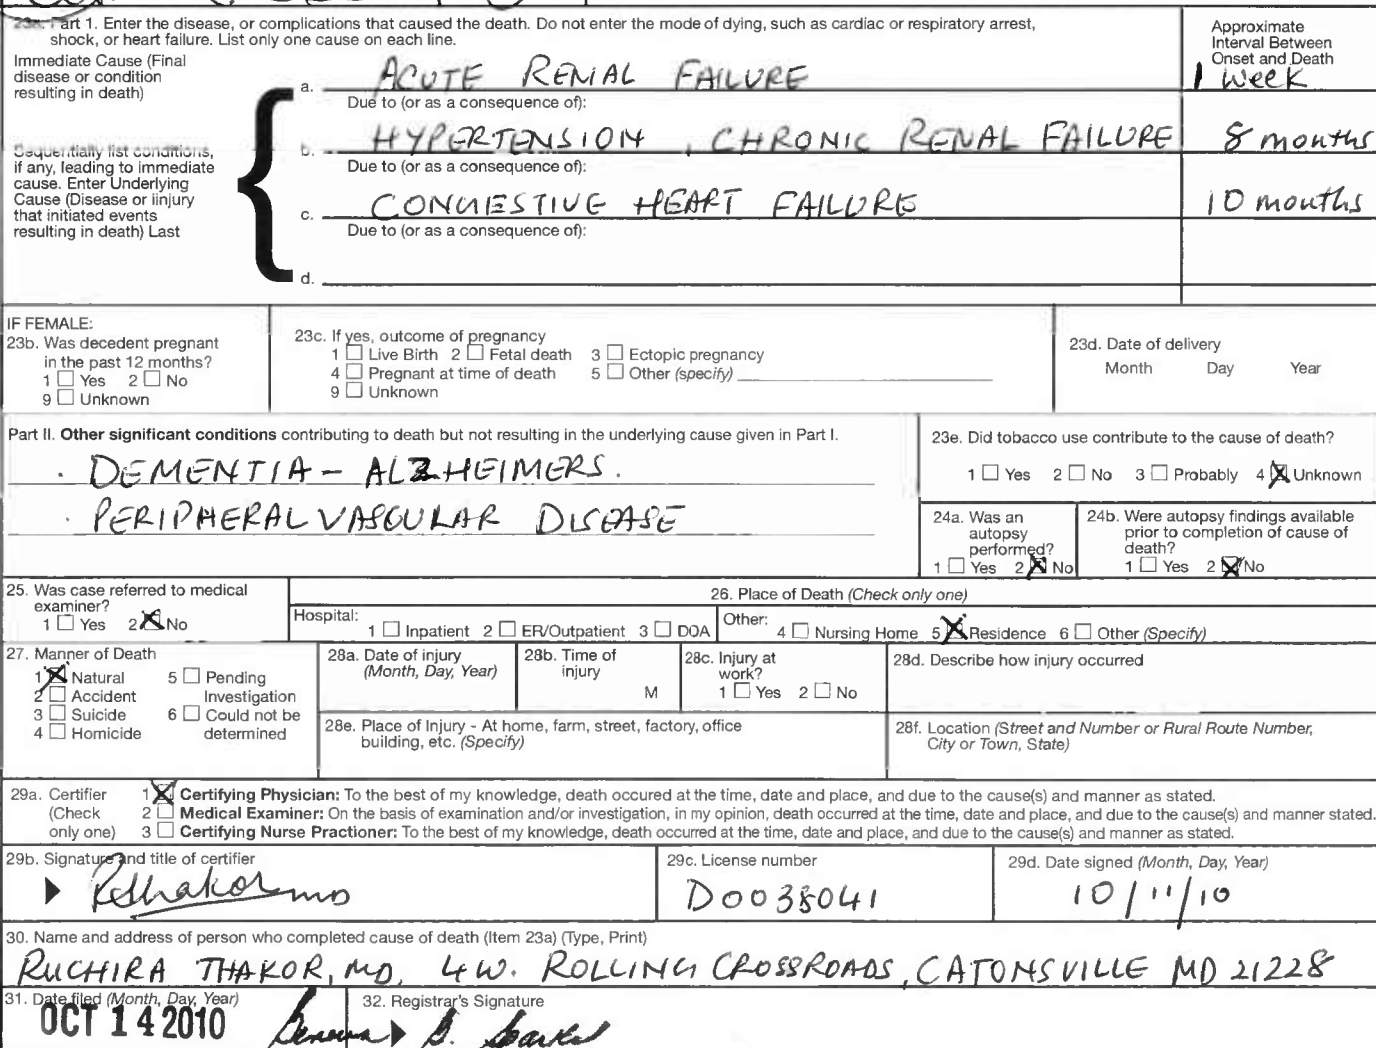 23a. Part 1. Enter the disease, or complications that caused the death. Do not enter the mode of dying, such as cardiac or respiratory arrest,
shock, or heart failure. List only one cause on each line.
Approximate
Interval Between
Onset and Death
Immediate Cause (Final
disease or condition
resulting in death)
a. ACUTE RENAL FAILURE 1 week
Due to (or as a consequence of):
b. HYPERTENSION, CHRONIC RENAL FAILURE 8 months
Sequentially list conditions,
if any, leading to immediate
cause. Enter Underlying
Cause (Disease or iinjury
that initiated events
resulting in death) Last
Due to (or as a consequence of):
c. CONGESTIVE HEART FAILURE 10 months
Due to (or as a consequence of):
d.
IF FEMALE:
23b. Was decedent pregnant
in the past 12 months?
1 Yes 2 No
9 Unknown
23c. If yes, outcome of pregnancy
1 Live Birth 2 Fetal death 3 Ectopic pregnancy
4 Pregnant at time of death 5 Other (specify)
9 Unknown
23d. Date of delivery
Month Day Year
Part II. Other significant conditions contributing to death but not resulting in the underlying cause given in Part I.
. DEMENTIA - ALZHEIMERS.
. PERIPHERAL VASCULAR DISEASE
23e. Did tobacco use contribute to the cause of death?
1 Yes 2 No 3 Probably 4 X Unknown
24a. Was an
autopsy
performed?
1 Yes 2 X No
24b. Were autopsy findings available
prior to completion of cause of
death?
1 Yes 2 X No
25. Was case referred to medical
examiner?
1 Yes 2 X No
26. Place of Death (Check only one)
Hospital:
1 Inpatient 2 ER/Outpatient 3 DOA
Other:
4 Nursing Home 5 X Residence 6 Other (Specify)
27. Manner of Death
1 X Natural 5 Pending
2 Accident Investigation
3 Suicide 6 Could not be
4 Homicide determined
28a. Date of injury
(Month, Day, Year)
28b. Time of
injury
M
28c. Injury at
work?
1 Yes 2 No
28d. Describe how injury occurred
28e. Place of Injury - At home, farm, street, factory, office
building, etc. (Specify)
28f. Location (Street and Number or Rural Route Number,
City or Town, State)
29a. Certifier
(Check
only one)
1 X Certifying Physician: To the best of my knowledge, death occured at the time, date and place, and due to the cause(s) and manner as stated.
2 Medical Examiner: On the basis of examination and/or investigation, in my opinion, death occurred at the time, date and place, and due to the cause(s) and manner stated.
3 Certifying Nurse Practioner: To the best of my knowledge, death occurred at the time, date and place, and due to the cause(s) and manner as stated.
29b. Signature and title of certifier
RThakor MD
29c. License number
D0038041
29d. Date signed (Month, Day, Year)
10/11/10
30. Name and address of person who completed cause of death (Item 23a) (Type, Print)
RUCHIRA THAKOR, MD, 4 W. ROLLING CROSSROADS, CATONSVILLE MD 21228
31. Date filed (Month, Day, Year)
OCT 14 2010
32. Registrar's Signature